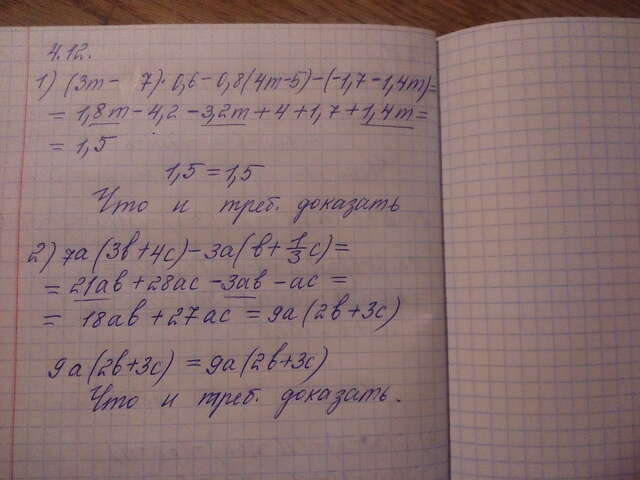 4.12.
1) (3m - 7)·0,6 - 0,8(4m-5) - (-1,7-1,4m)=
= 1,8m - 4,2 - 3,2m + 4 + 1,7 + 1,4m =
= 1,5
1,5 = 1,5
Что и треб. доказать
2) 7a(3b+4c) - 3a(b+1/3c) =
= 21ab + 28ac - 3ab - ac =
= 18ab + 27ac = 9a(2b+3c)
9a(2b+3c) = 9a(2b+3c)
Что и треб. доказать.